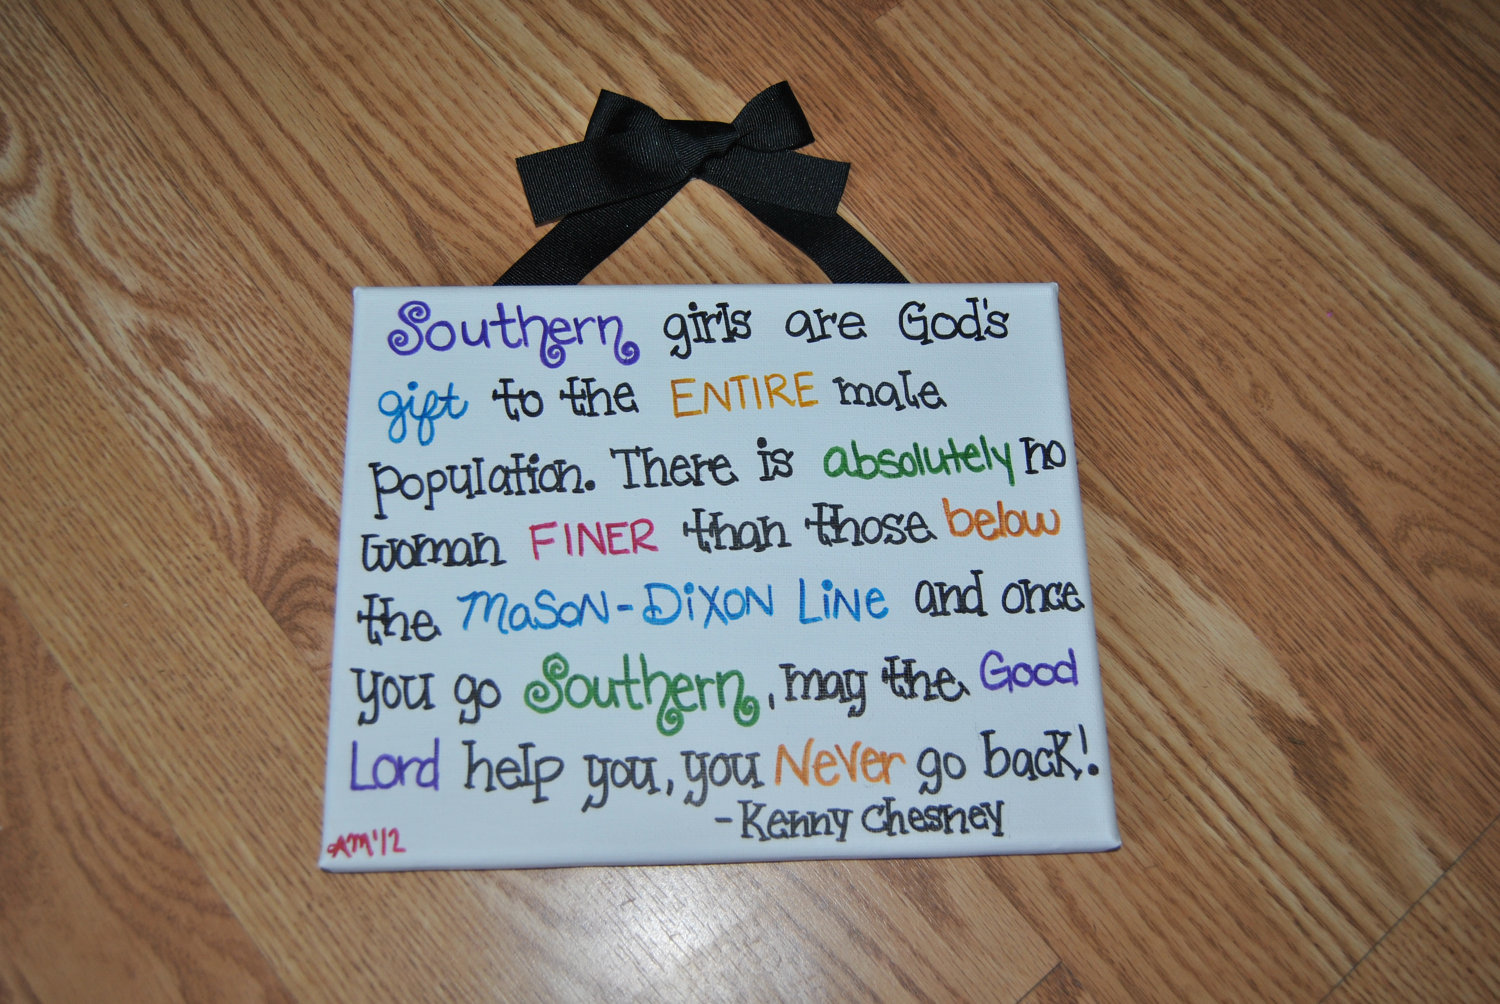 Southern girls are God's
gift to the ENTIRE male
population. There is absolutely no
woman FINER than those below
the MaSoN-DiXON LiNe and once
you go Southern, may the Good
Lord help you, you NeVer go back!
-Kenny Chesney
AM'12